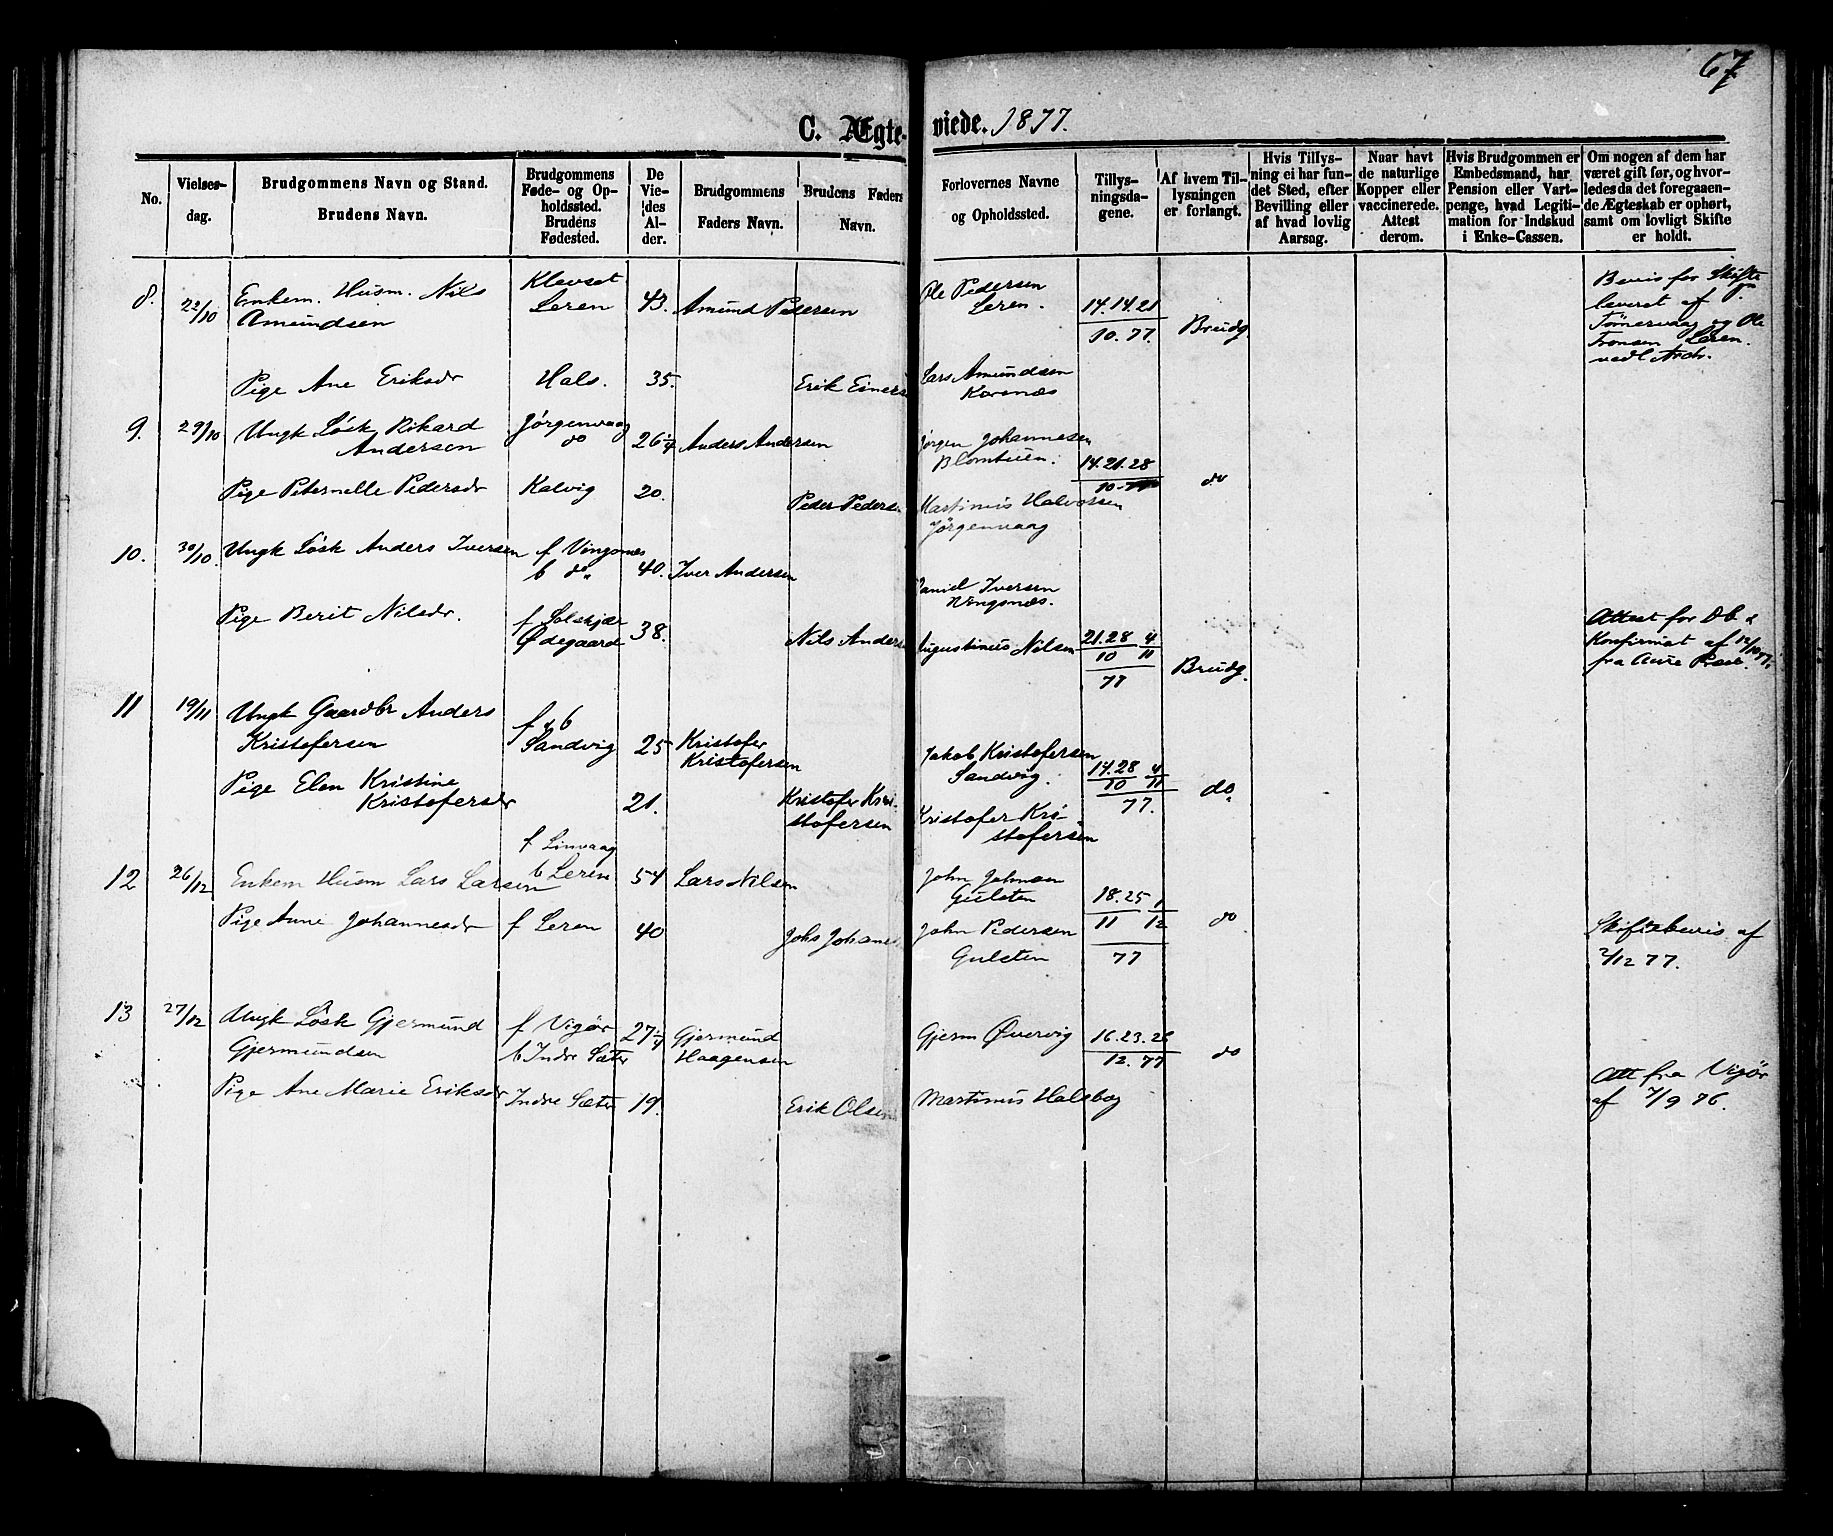 67
C. Ægte- viede. 1877.
No.
Vielses-
dag.
Brudgommens Navn og Stand.
Brudens Navn.
Brudgommens
Føde- og Op-
holdssted.
Brudens
Fødested.
De
Vie-
des
Al-
der.
Brudgommens
Faders Navn.
Brudens Faders
Navn.
Forlovernes Navne
og Opholdssted.
Tillys-
ningsda-
gene.
Af hvem Til-
lysningen
er forlangt.
Hvis Tillys-
ning ei har fun-
det Sted, efter
Bevilling eller
af hvad lovlig
Aarsag.
Naar havt
de naturlige
Kopper eller
vaccinerede.
Attest
derom.
Hvis Brudgommen er
Embedsmand, har
Pension eller Vart-
penge, hvad Legiti-
mation for Indskud
i Enke-Cassen.
Om nogen af dem har
været gift før, og hvor-
ledes da det foregaaen-
de Ægteskab er ophørt,
samt om lovligt Skifte
er holdt.
8.
22/10
Enkem. Husm. Nils
Amundsen
Klevset
Leren
43.
Amund Pedersen
Ole Pedersen
Leren.
14.14.21
10. 77.
Brudg.
Bevis for Skifte
leveret af
Tømervaag og Ole
Tronsen Leren.
vedl. Arch.
Pige Ane Eriksdr
Hals.
35.
Erik Einers
Lars Amundsen
Korsnæs
9.
29/10
Ungk Løsk Rikard
Andersen
Jørgenvaag
do
26 1/4
Anders Andersen
Jørgen Johannesen
Blomtuen.
14.21.28
10-77
do
Pige Peternelle Pedersdr
Kalvig
20.
Peder Pedersen
Martinus Halvorsen
Jørgenvaag
10.
30/10.
Ungk Løsk Anders Iversen
f Vingsnes
b do
40.
Iver Andersen
Daniel Iversen
Vingsnæs.
Pige Berit Nilsdr.
f Solskjær
Ødegaard
38.
Nils Anders
Augustinus Nilsen
21.28 4
10 11
77
Brudg.
Attest for Db &
Konfirmat af 12/10 77
fra Aure Præst.
11
19/11
Ungk Gaardbr Anders
Kristofersen
f & b
Sandvig
25
Kristofer
Kristofersen
Jakob Kristofersen
Sandvig.
14.28 4
10 11
77.
do
Pige Elen Kristine
Kristofersdr
21.
Kristofer Kri-
stofersen
Kristofer Kri-
stofersen
12
26/12
Enkem Husm Lars Larsen
f Linvaag
b Leren
54
Lars Nilsen
John Johnsen
Gulsten
18.25 1
11 12
77
do
Pige Anne Johannesdr
f Leren
40
Johs Johanes
John Pedersen
Gulsten
Skiftebevis af
2/12 77.
13
27/12
Ungk Løsk Gjermund
Gjermundsen
f Vigør
b Indre Sæter
27 1/4
Gjermund
Haagensen
Gjerm Øvervig
16.23.26
12. 77
do
Pige Ane Marie Eriksdr
Indre Sæter
19.
Erik Olsen
Martinus Halsbog
Att fra Vigør
af 7/9 76.